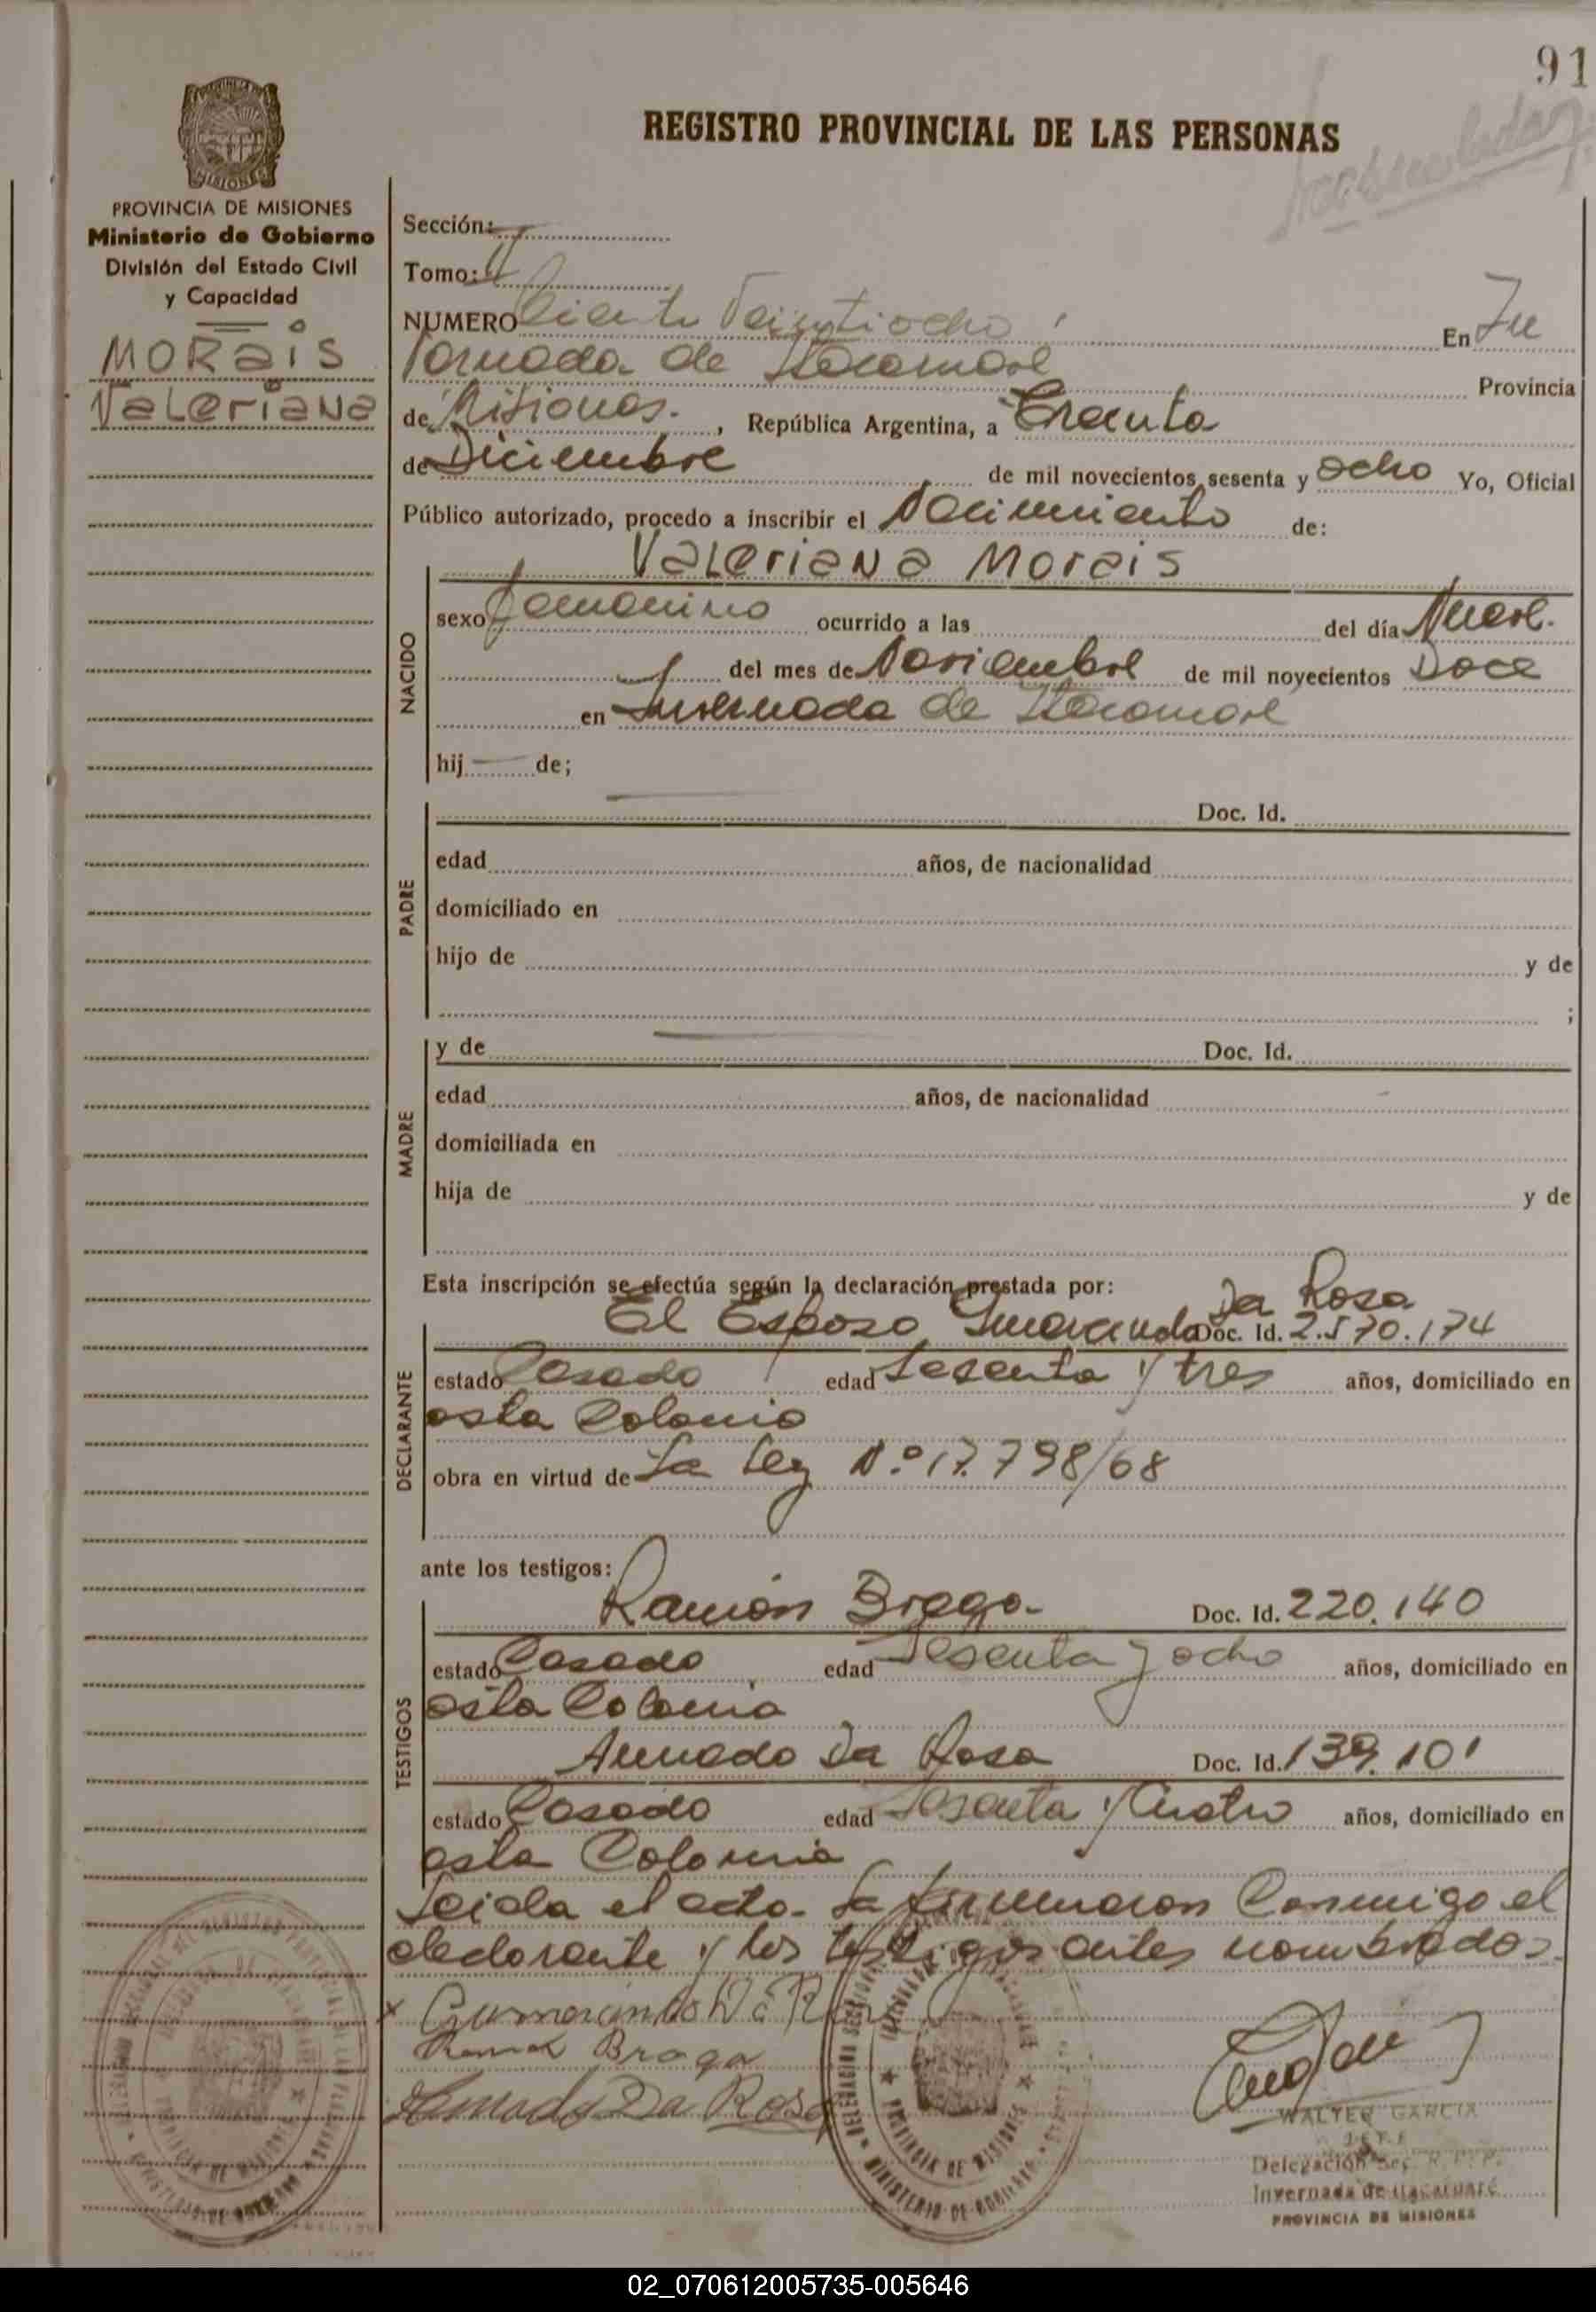 91
REGISTRO PROVINCIAL DE LAS PERSONAS
PROVINCIA DE MISIONES
Ministerio de Gobierno
División del Estado Civil
y Capacidad
MORais
Valeriana
Sección:
Tomo:
NUMERO Ciento Veintiocho En In
vernada de Itacaruaré Provincia
de Misiones. , República Argentina, a Treinta
de Diciembre de mil novecientos sesenta y ocho Yo, Oficial
Público autorizado, procedo a inscribir el Nacimiento de:
Valeriana Morais
NACIDO
sexo femenino ocurrido a las del día Nueve.
del mes de Noviembre de mil novecientos Doce
en Invernada de Itacaruaré
hij de;
PADRE
Doc. Id.
edad años, de nacionalidad
domiciliado en
hijo de y de
;
MADRE
y de Doc. Id.
edad años, de nacionalidad
domiciliada en
hija de y de
Esta inscripción se efectúa según la declaración prestada por:
El Esposo Gumercindo Da Rosa Doc. Id. 2.570.174
DECLARANTE
estado Casado edad Sesenta y tres años, domiciliado en
esta Colonia
obra en virtud de La Ley N.º 17.798/68
ante los testigos:
TESTIGOS
Ramón Braga Doc. Id. 220.140
estado Casado edad Sesenta y ocho años, domiciliado en
esta Colonia
Amado Da Rosa Doc. Id. 139.101
estado Casado edad Sesenta y Cuatro años, domiciliado en
esta Colonia
Leida el acta. La firmaron Conmigo el
declarante y los testigos antes nombrados.
x Gumercindo Da Ro
Ramon Braga
Amado Da Rosa
WALTER GARCIA
JEFE
Delegación Sec. R. P. P.
Invernada de Itacaruaré
PROVINCIA DE MISIONES
02_070612005735-005646